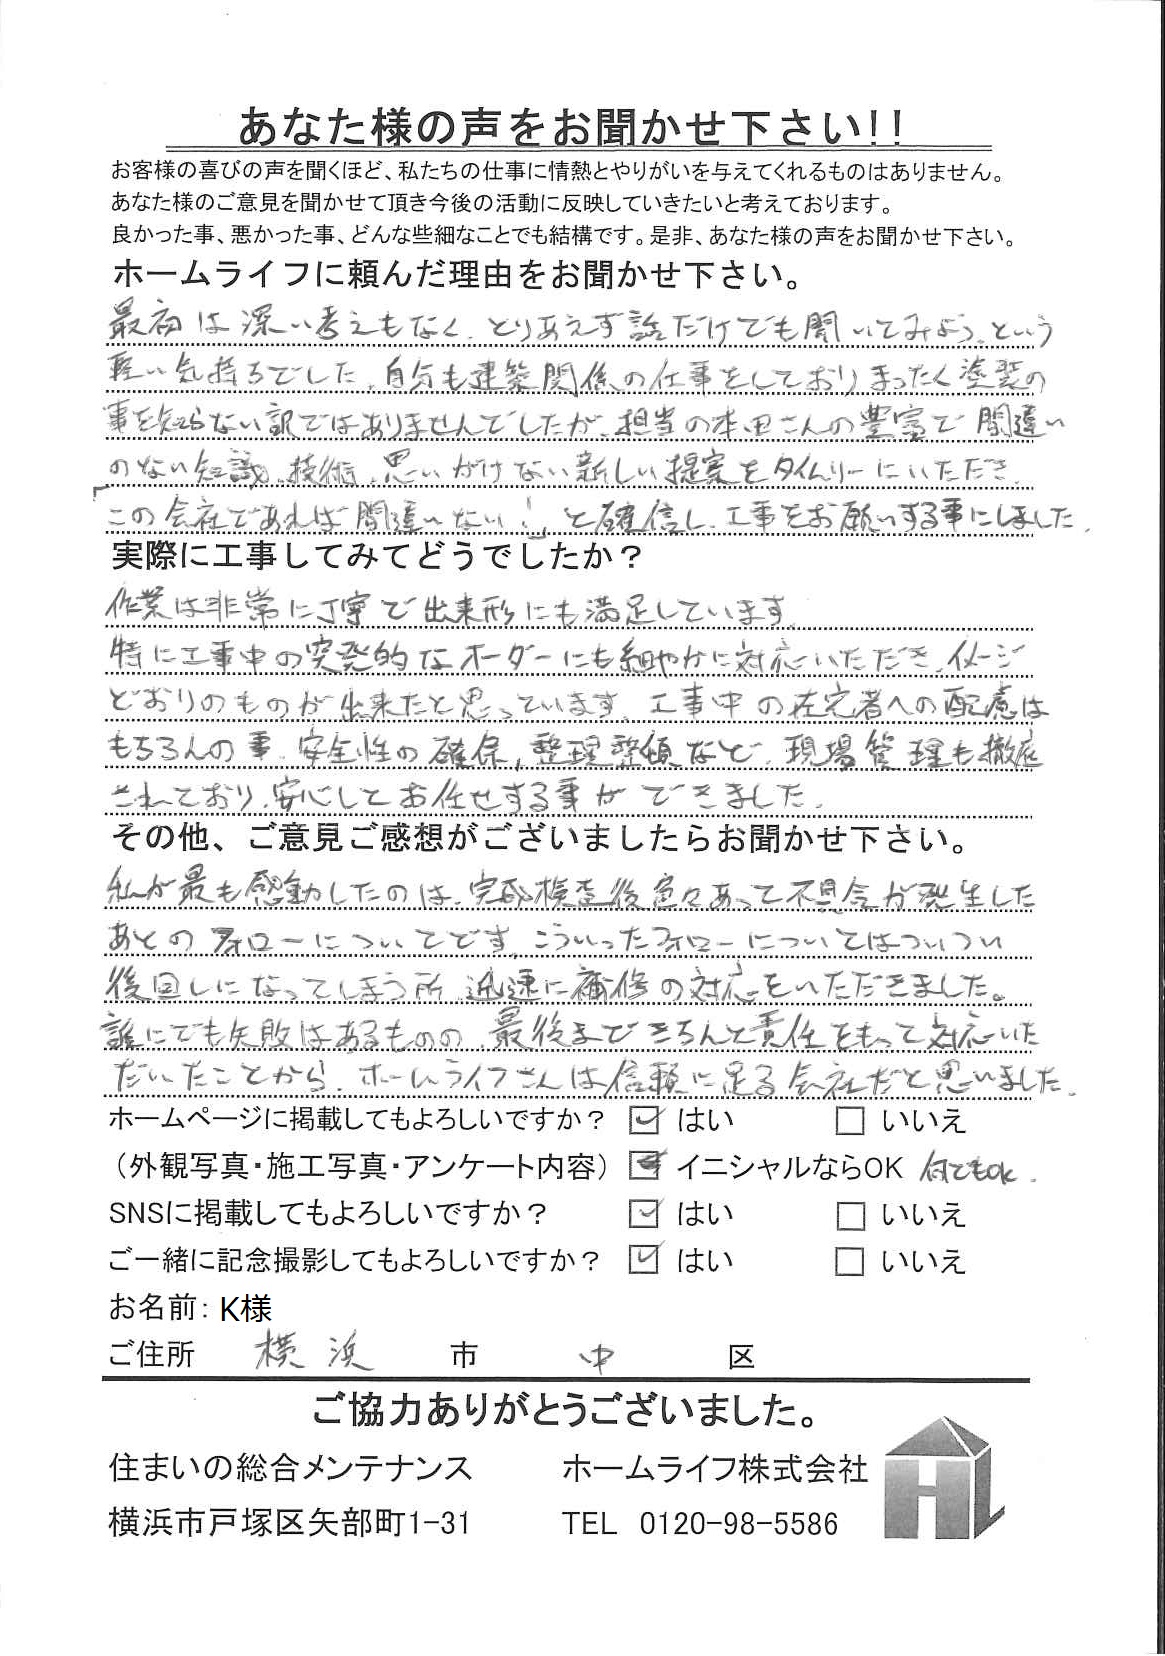 あなた様の声をお聞かせ下さい!!
お客様の喜びの声を聞くほど、私たちの仕事に情熱とやりがいを与えてくれるものはありません。
あなた様のご意見を聞かせて頂き今後の活動に反映していきたいと考えております。
良かった事、悪かった事、どんな些細なことでも結構です。是非、あなた様の声をお聞かせ下さい。
ホームライフに頼んだ理由をお聞かせ下さい。
最初は深い考えもなく、とりあえず話だけでも聞いてみよう、という
軽い気持ちでした。自分も建築関係の仕事をしておりまったく塗装の
事を知らない訳ではありませんでしたが、担当の本田さんの豊富で間違い
のない知識、技術、思いがけない新しい提案をタイムリーにいただき、
「この会社であれば間違いない!」と確信し、工事をお願いする事にしました。
実際に工事してみてどうでしたか?
作業は非常に丁寧で出来形にも満足しています。
特に工事中の突発的なオーダーにも細やかに対応いただき、イメージ
どおりのものが出来たと思っています。工事中の在宅者への配慮は
もちろんの事、安全性の確保、整理整頓など、現場管理も徹底
されており、安心してお任せする事ができました。
その他、ご意見ご感想がございましたらお聞かせ下さい。
私が最も感動したのは、完成検査後色々あって不具合が発生した
あとのフォローについてです。こういったフォローについてはついつい
後回しになってしまう所、迅速に補修の対応をいただきました。
誰にでも失敗はあるものの、最後まできちんと責任をもって対応いた
だいたことから、ホームライフさんは信頼に足る会社だと思いました。
ホームページに掲載してもよろしいですか? はい いいえ
(外観写真・施工写真・アンケート内容) イニシャルならOK 何でもOK.
SNSに掲載してもよろしいですか? はい いいえ
ご一緒に記念撮影してもよろしいですか? はい いいえ
お名前: K様
ご住所 横浜 市 中 区
ご協力ありがとうございました。
住まいの総合メンテナンス ホームライフ株式会社
横浜市戸塚区矢部町1-31 TEL 0120-98-5586
HL